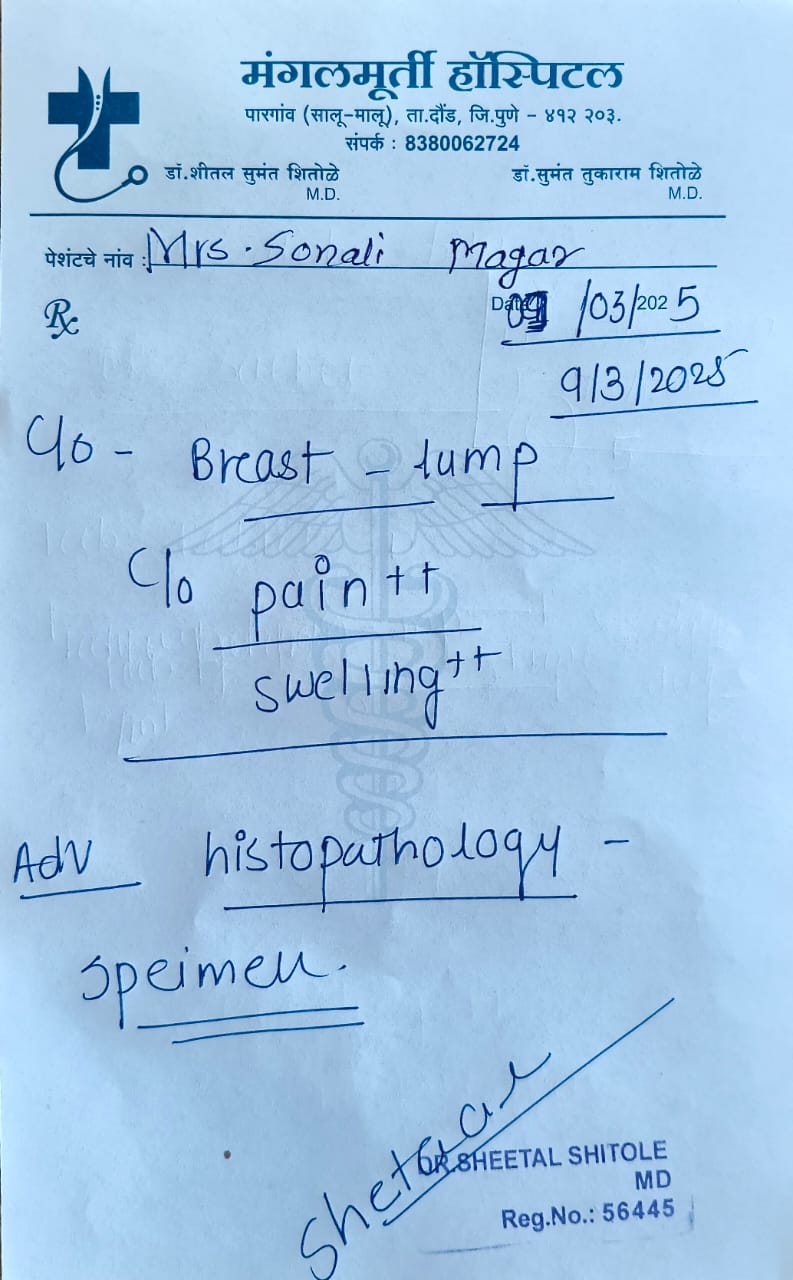 मंगलमूर्ती हॉस्पिटल
पारगांव (सालू-मालू), ता.दौंड, जि.पुणे - ४१२ २०३.
संपर्क : 8380062724
डॉ.शीतल सुमंत शितोळे
M.D.
डॉ.सुमंत तुकाराम शितोळे
M.D.
पेशंटचे नांव : Mrs. Sonali Magar
Rx
Date 09/03/2025
9/3/2025
C/o - Breast - lump
C/o pain ++
swelling ++
Adv histopathology -
speimen.
Sheetal
DR.SHEETAL SHITOLE
MD
Reg.No.: 56445